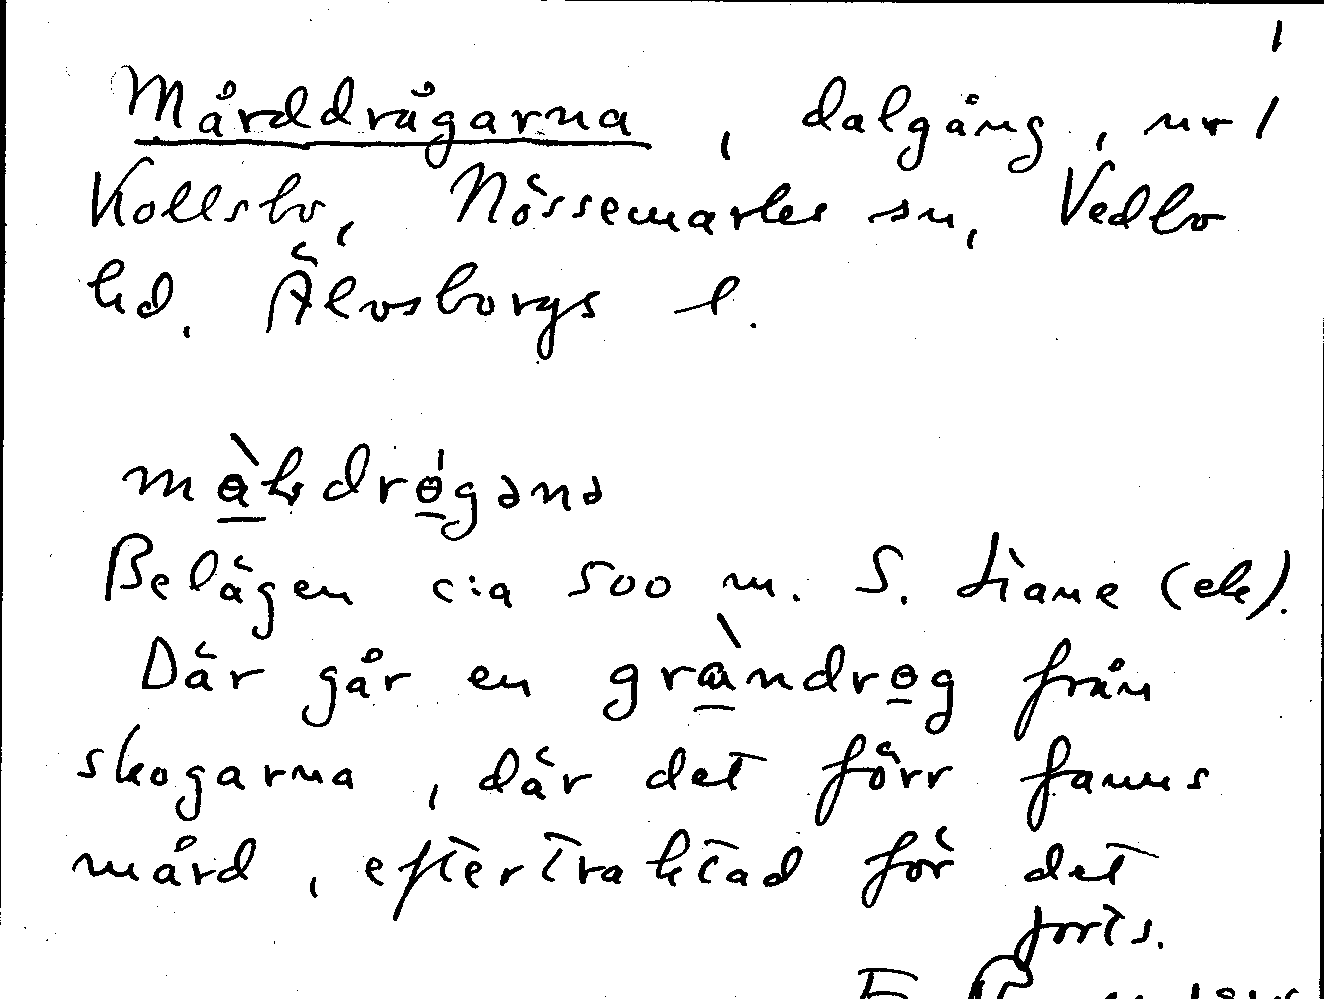 1
Mårddrågarna, dalgång, nr 1
Kollsbo, Nössemarks sn, Vedbo
hd. Älvsborgs l.
Belägen c:a 500 m. S. Liane (ek).
Där går en gràndrɵg från
skogarna, där det förr fanns
mård, eftertraktad för det
forts.